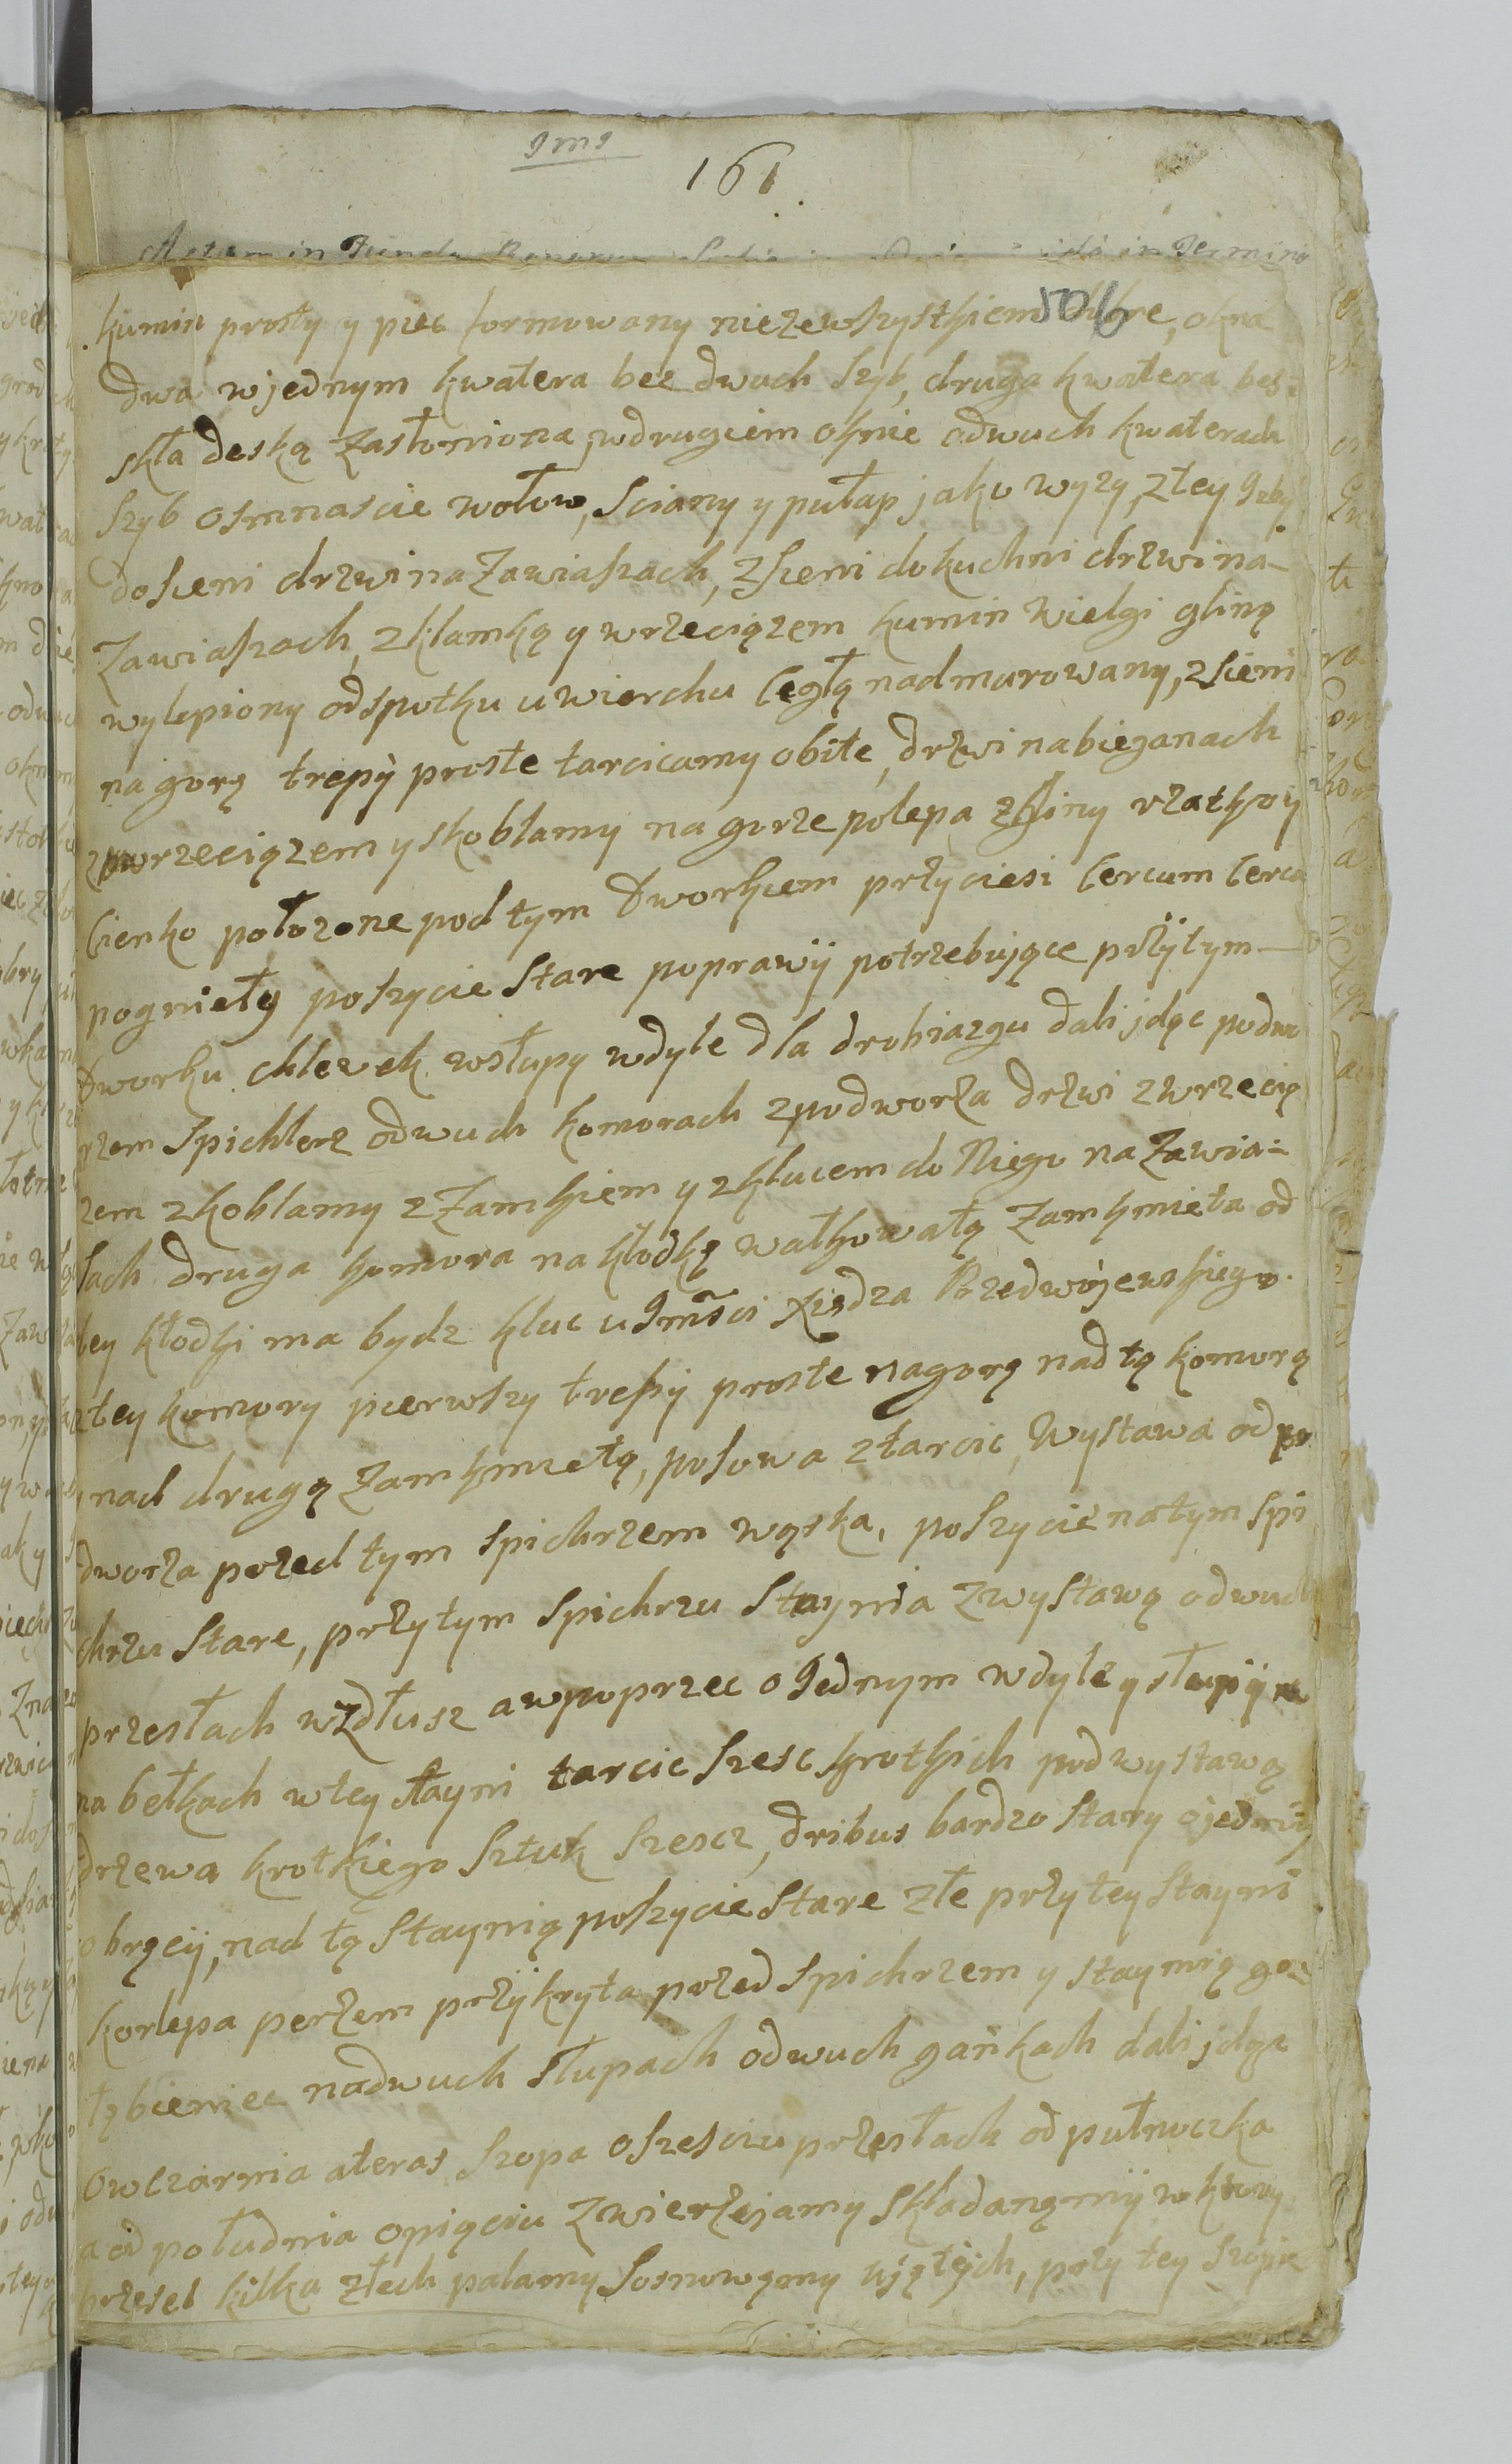 161
Actum in Fundo Bonorum in Termino
kumin prosty y piec formowany niezewszystkiem dobre, okna
506
dwa wjednym kwatera bez dwuch szyb, druga kwatera bes-
skła deską zasłoniona, wdrugiem oknie odwuch kwaterach
szyb osmnascie wołow, sciany y pułap jako wyzy, ztey Izby
dosieni drzwi na zawiasach, zsieni dokuchni drzwi na-
zawiasach, zklamką y wrzeciązem kumin wielgi gliną
wylepiony odspotku uwierchu cegłą nadmurowany, zsieni
na gorę trepÿ proste tarcicamy obite, drzwi nabieganach
zwrzeciązem y skoblamy na gorze polepa zgliny rzatkoy
cienko połozone pod tym Dworkiem przyciesi cercum cerca
pogniełÿ poszycie stare poprawÿ potrzebujące przÿtym
Dworku chlewek wsłupy wdyle dla drobiazgu dali jdąc podwo
rzem spichlerz odwuch komorach zpodworza drzwi zwrzecią
zem zkoblamy zZamkiem y zklucem do Niego na zawia-
sach druga komora na kłodkę wałkowatą zamkmieta od
tey kłodki ma bydz kluc u Imści Xiedza Przedwojewskiego.
ztey komory pierwszy trepÿ proste nagorę nad tą komorą
nad drugą zamkmietą, posowa ztarcic, wystawa od po
dworza przed tym spichrzem wąska, poszycie natym spi
chrzu stare, przytym spichrzu staynia zwystawą odwuch
przesłach wzdłusz awpoprzec o Iednym wdyle y słupÿ
na belkach wtey stayni tarcic szesc krotkich podwystawą
drzewa krotkiego sztuk szescz, dribus bardzo stary ojednÿ
obręcÿ, nad tą staynią poszycie stare złe przy tey stayni
korlepa perzem przÿkryta przed spichrzem y staymią go-
łębieniec nadwuch słupach odwuch gankach dali jdąc
owczarnia ateras szopa oszesciu przęsłach od pułnoczka
a od południa opięciu zwierzejamy składanęmÿ wktory
przęseł kilka złech palamy sosnowęmy ujętÿch, przy tey szopie